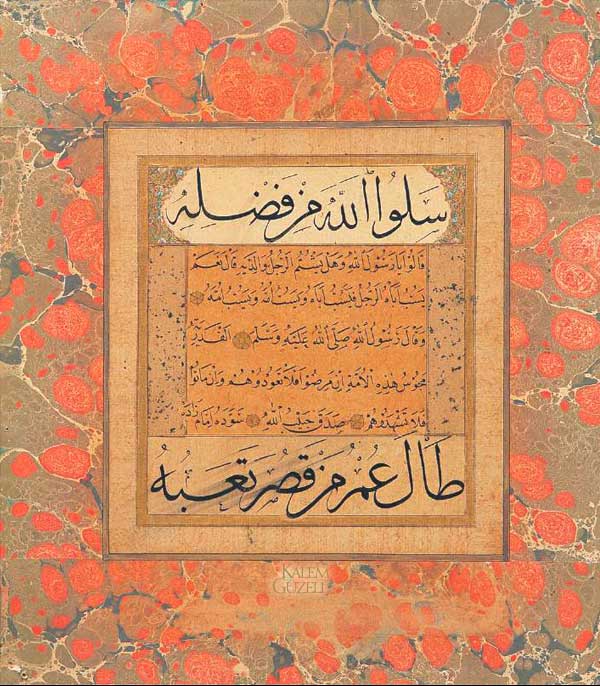 سلوا الله من فضله
قالوا يا رسول الله وهل يشتم الرجل والديه قال نعم
يسب اباه الرجل فيسب اباه ويسب امه ويسب امه
وقال رسول الله صلى الله عليه وسلم القدرية
مجوس هذه الامة ان مرضوا فلا تعودوهم وان ماتوا
فلا تشهدوهم صدق حبيب الله سوده امام زاده
طال عمر من قصر تعبه
KALEM
GÜZELİ